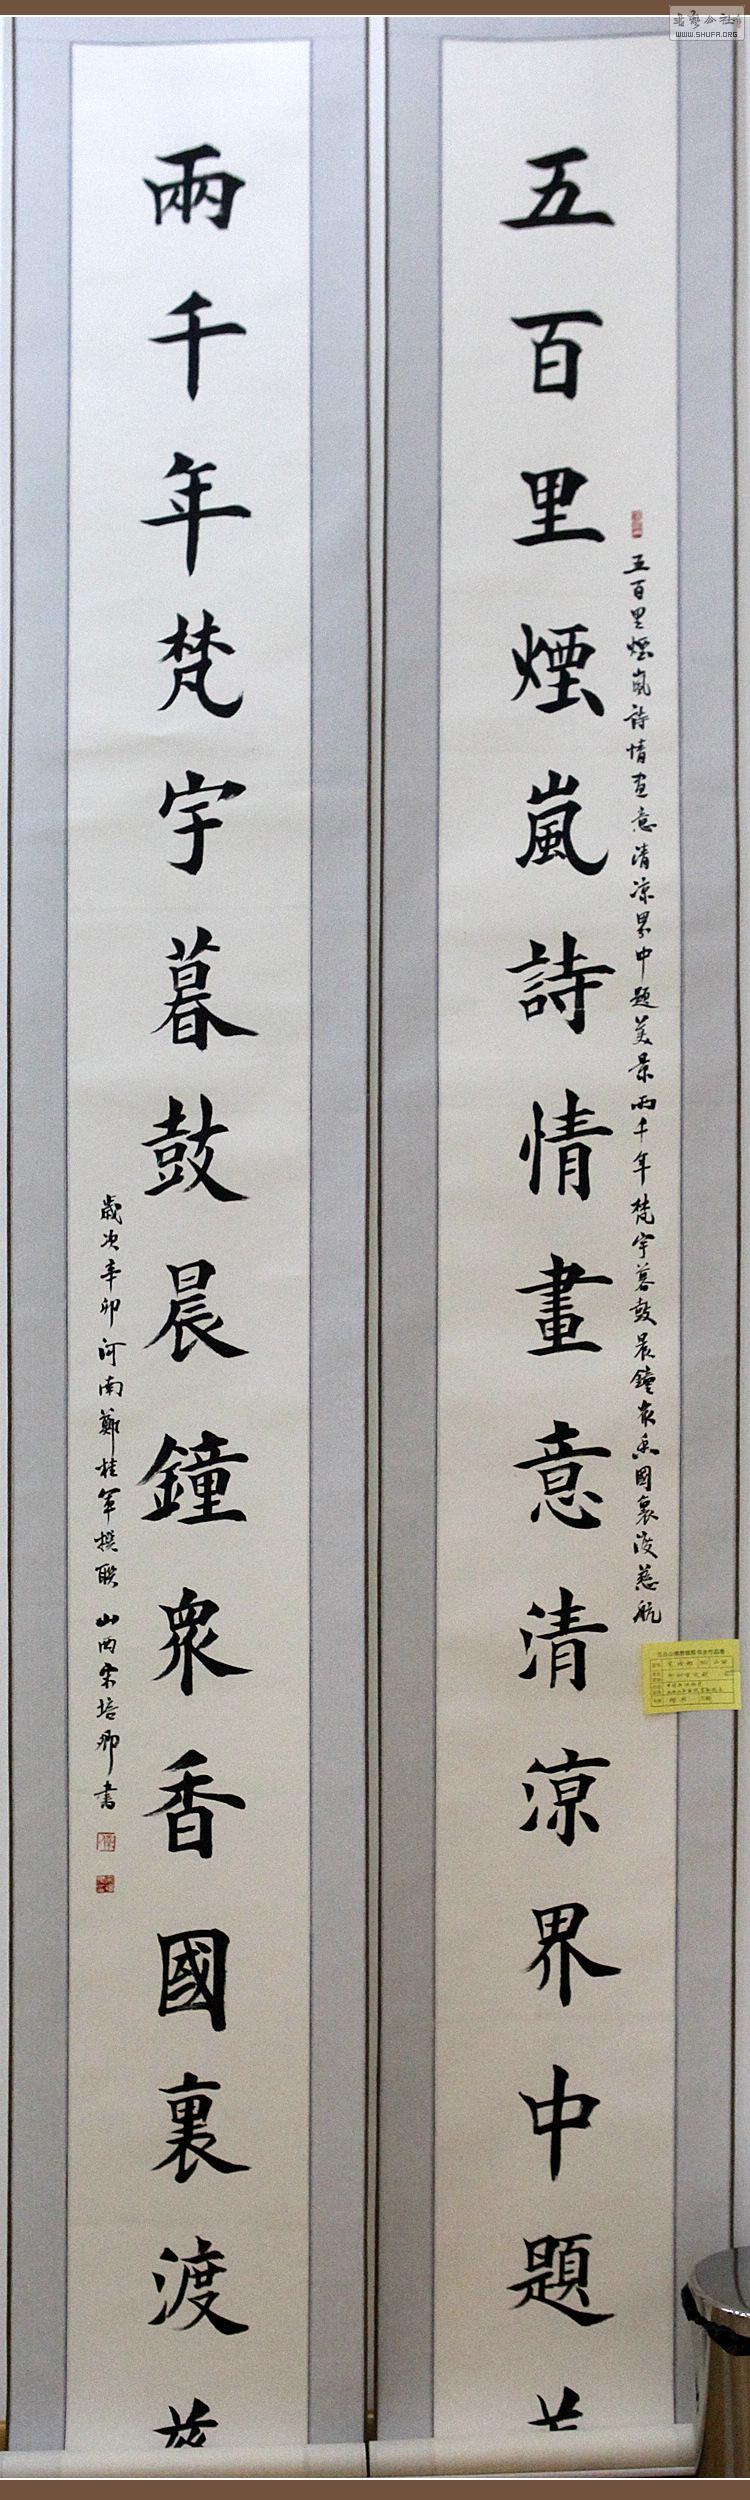 五百里煙嵐詩情畫意清涼界中題
五百里煙嵐詩情畫意清涼界中題美景兩千年梵宇暮鼓晨鐘眾香國裏渡慈航
兩千年梵宇暮鼓晨鐘眾香國裏渡
歲次辛卯河南鄭桂軍撰聯山西宋培卿書
WWW.SHUFA.ORG